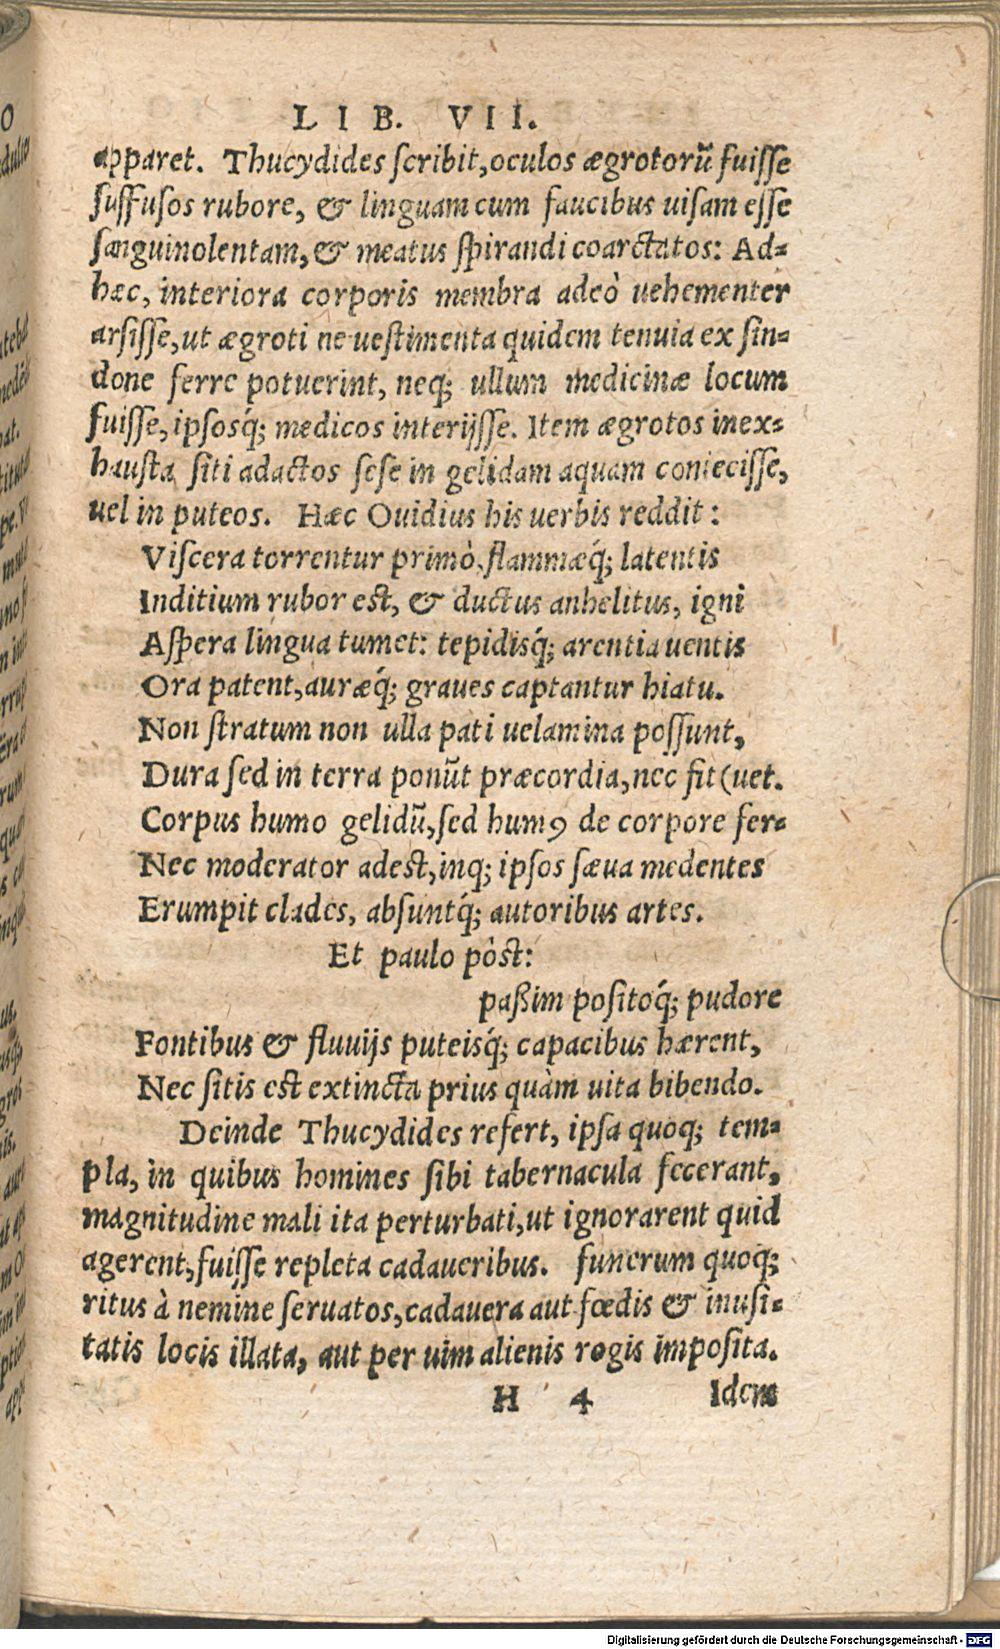 LIB. VII.
apparet. Thucydides scribit, oculos ægrotorũ fuisse
suffusos rubore, & linguam cum faucibus uisam esse
sanguinolentam, & meatus spirandi coarctatos: Ad-
hæc, interiora corporis membra adeò uehementer
arsisse, ut ægroti ne uestimenta quidem tenuia ex sin-
done ferre potuerint, neq; ullum medicinæ locum
fuisse, ipsosq́; medicos interijsse. Item ægrotos inex-
hausta siti adactos sese in gelidam aquam coniecisse,
uel in puteos. Hæc Ouidius his uerbis reddit:
Viscera torrentur primò, flammæq́; latentis
Inditium rubor est, & ductus anhelitus, igni
Aspera lingua tumet: tepidisq́; arentia uentis
Ora patent, auræq́; graues captantur hiatu.
Non stratum non ulla pati uelamina possunt,
Dura sed in terra ponũt præcordia, nec fit (uet.
Corpus humo gelidũ, sed humꝰ de corpore fer-
Nec moderator adest, inq; ipsos sæua medentes
Erumpit clades, absuntq́; autoribus artes.
Et paulo pòst:
paßim positoq́; pudore
Fontibus & fluuijs puteisq́; capacibus hærent,
Nec sitis est extincta prius quàm uita bibendo.
Deinde Thucydides refert, ipsa quoq; tem-
pla, in quibus homines sibi tabernacula fecerant,
magnitudine mali ita perturbati, ut ignorarent quid
agerent, fuisse repleta cadaueribus. funerum quoq;
ritus à nemine seruatos, cadauera aut fœdis & inusi-
tatis locis illata, aut per uim alienis rogis imposita.
H 4 Idem
Digitalisierung gefördert durch die Deutsche Forschungsgemeinschaft - DFG